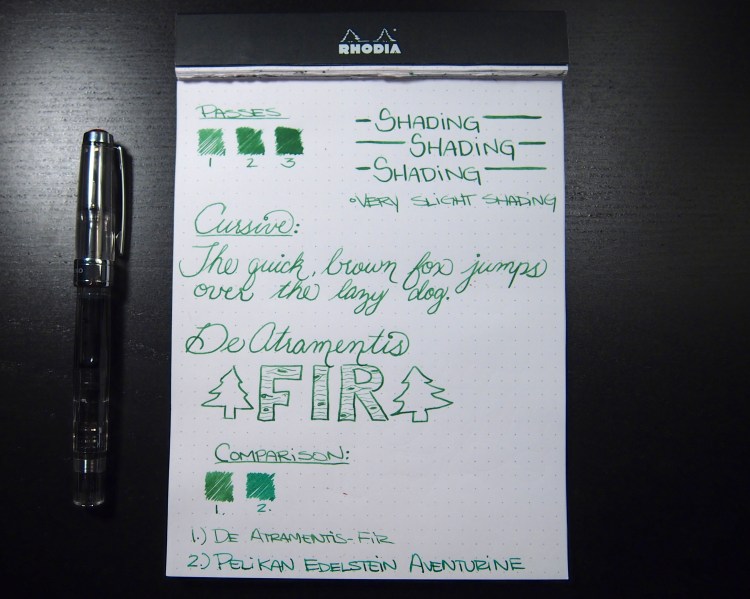 RHODIA
PASSES
1 2 3
- SHADING —
— SHADING -
- SHADING —
• VERY SLIGHT SHADING
Cursive:
The quick, brown fox jumps
over the lazy dog.
De Atramentis
FIR
COMPARISON:
1. 2.
1.) DE ATRAMENTIS-FIR
2.) PELIKAN EDELSTEIN AVENTURINE